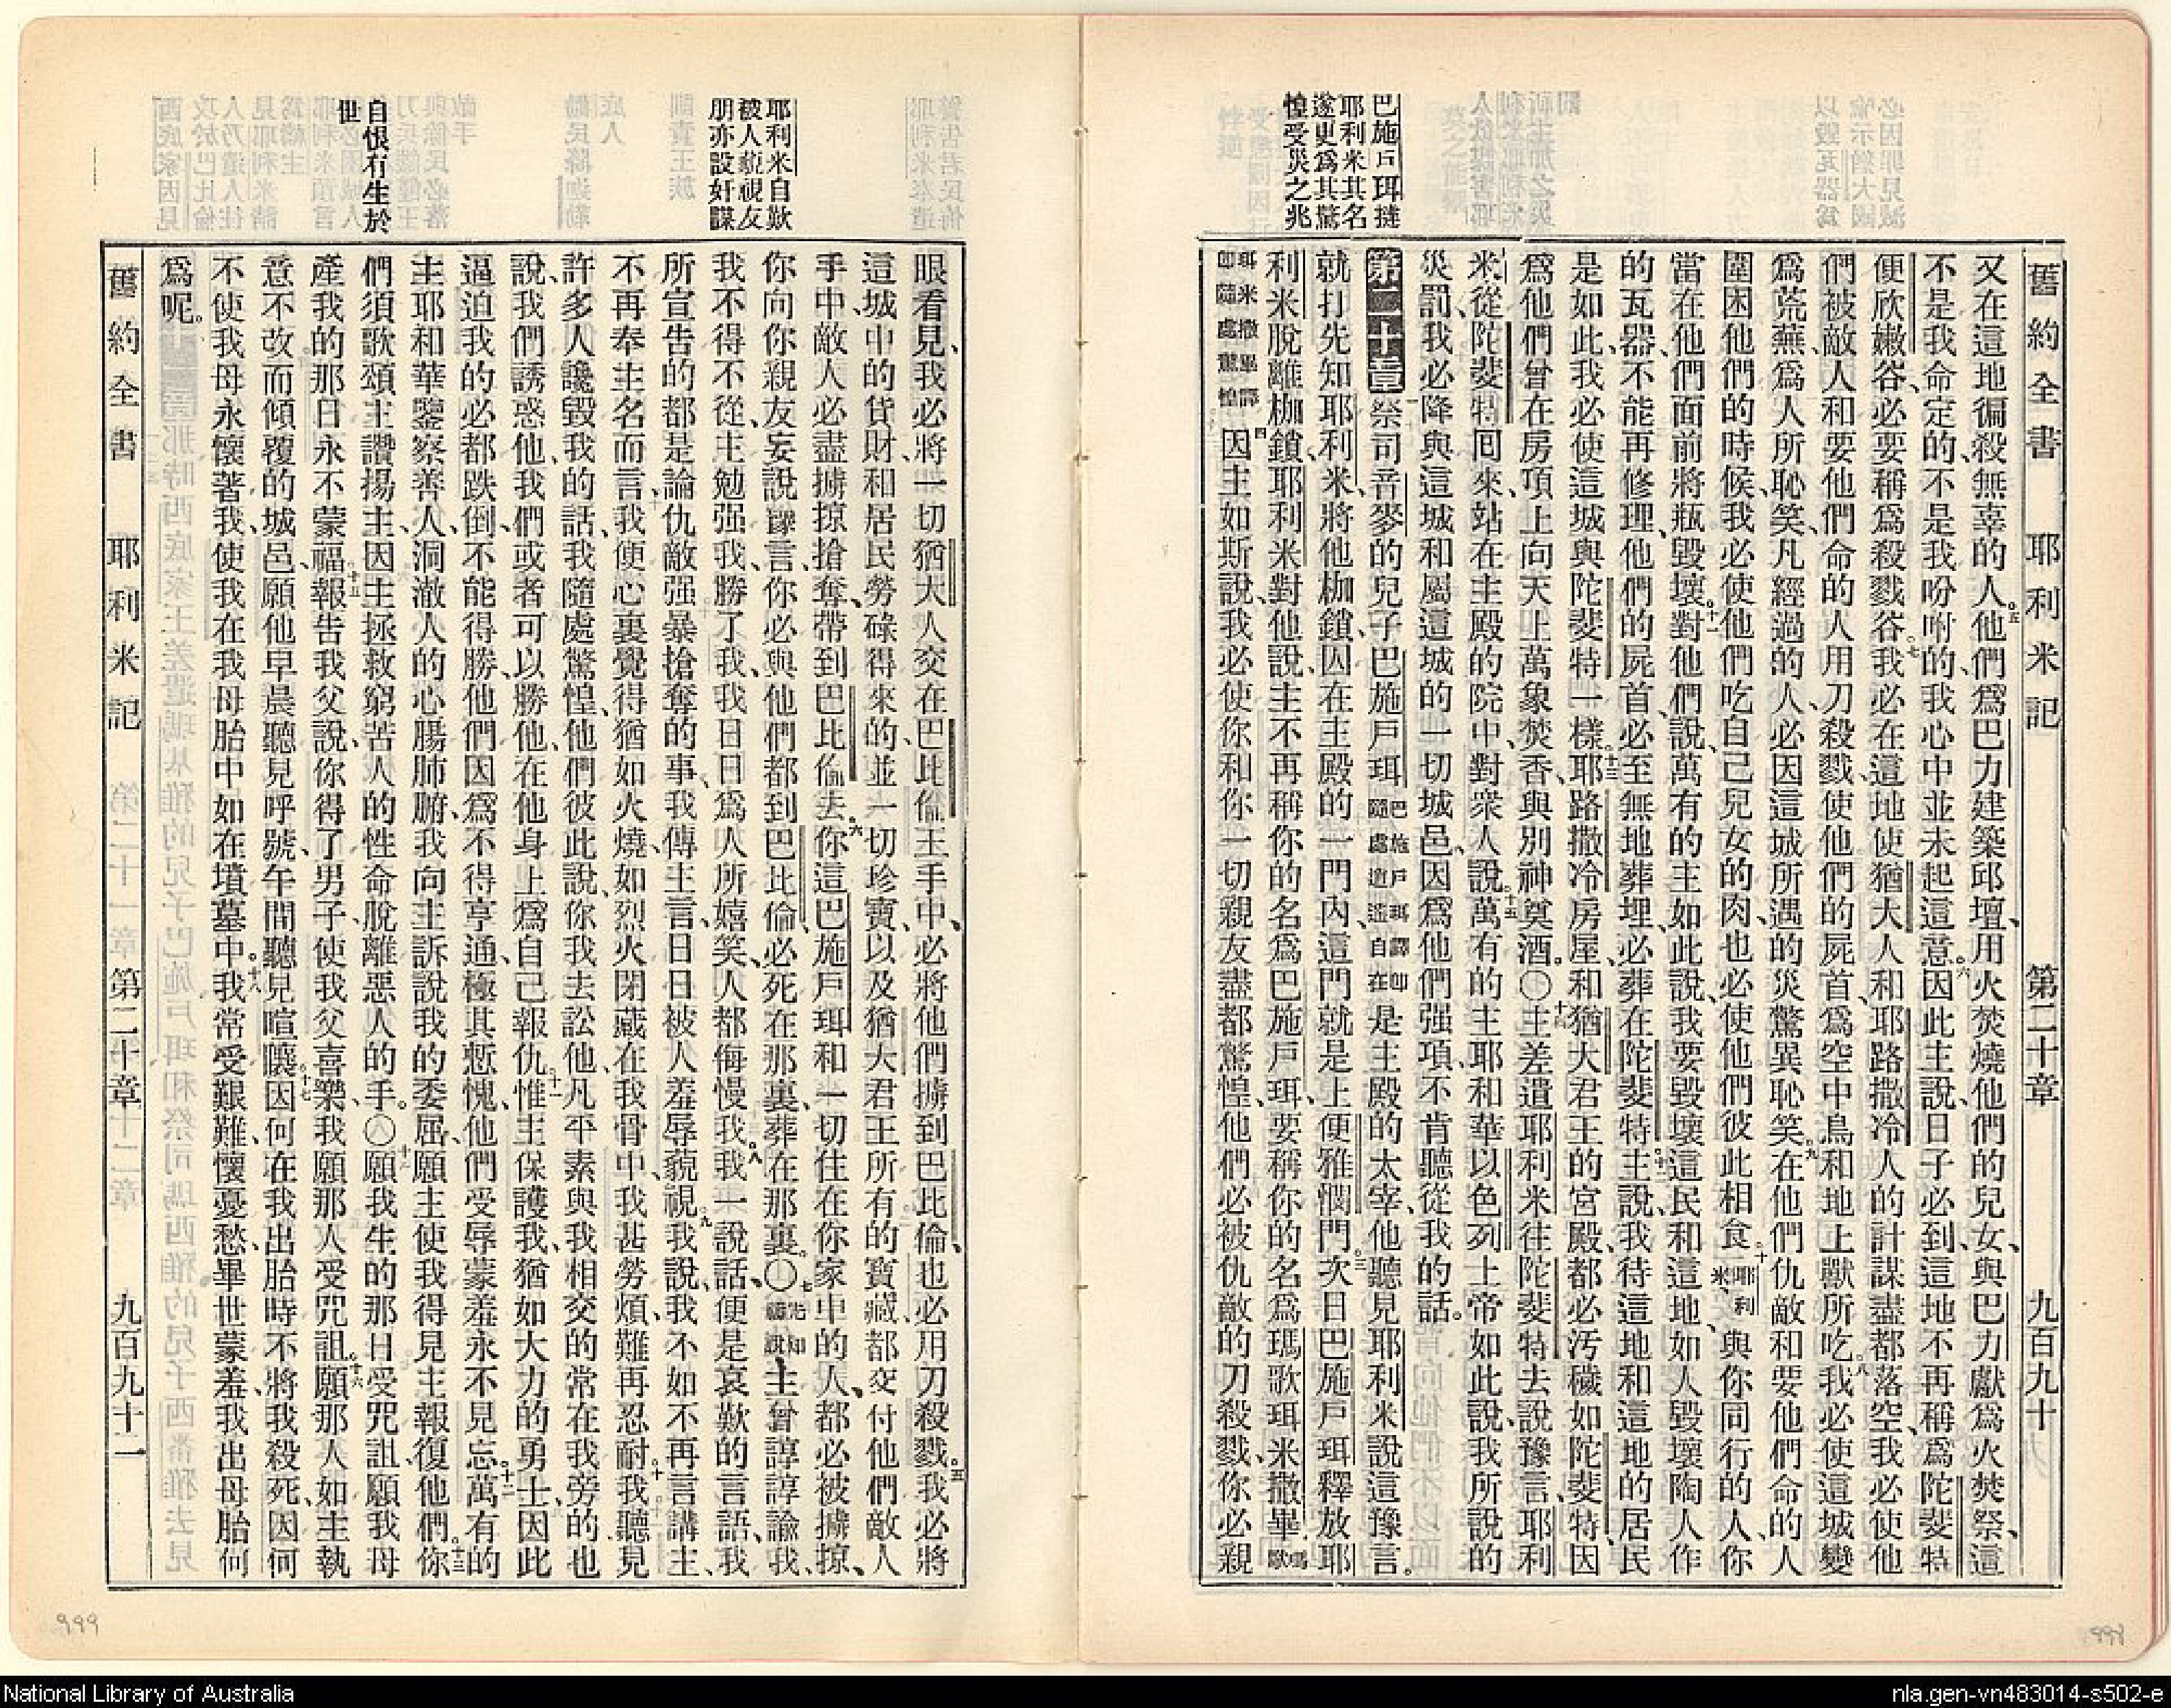 舊約全書　耶利米記　第二十章　九百九十
巴施戶珥撻
耶利米其名
遂更爲其驚
惶受災之兆
又在這地徧殺無辜的人、五他們爲巴力建築邱壇、用火焚燒他們的兒女、與巴力獻爲火焚祭、這
不是我命定的、不是我吩咐的、我心中並未起這意。六因此主說、日子必到、這地不再稱爲陀斐特
便欣嫩谷、必要稱爲殺戮谷。七我必在這地使猶大人和耶路撒冷人的計謀盡都落空、我必使他
們被敵人和要他們命的人用刀殺戮、使他們的屍首、爲空中鳥和地上獸所吃。八我必使這城變
爲荒蕪、爲人所恥笑、凡經過的人、必因這城所遇的災驚異恥笑。九在他們仇敵和要他們命的人
圍困他們的時候、我必使他們吃自己兒女的肉、也必使他們彼此相食。十耶利米、與你同行的人、你
當在他們面前將瓶毀壞。十一對他們說、萬有的主如此說、我要毀壞這民和這地、如人毀壞陶人作
的瓦器、不能再修理、他們的屍首、必至無地葬埋、必葬在陀斐特。十二主說、我待這地和這地的居民
是如此、我必使這城與陀斐特一樣。十三耶路撒冷房屋、和猶大君王的宮殿、都必汚穢如陀斐特、因
爲他們曾在房頂上向天上萬象焚香、與別神奠酒。〇十四主差遣耶利米往陀斐特去說豫言、耶利
米從陀斐特回來、站在主殿的院中、對衆人說、十五萬有的主耶和華以色列上帝如此說、我所說的
災罰、我必降與這城和屬這城的一切城邑、因爲他們强項、不肯聽從我的話。
第二十章　祭司音麥的兒子巴施戶珥巴施戶珥譯卽隨處逍遙自在是主殿的太宰、他聽見耶利米說這豫言。
就打先知耶利米、將他枷鎖、囚在主殿的一門內、這門就是上便雅憫門。三次日巴施戶珥釋放耶
利米脫離枷鎖、耶利米對他說、主不再稱你的名爲巴施戶珥、要稱你的名爲瑪歌珥米撒畢瑪歌
珥米撒畢譯卽隨處驚惶。四因主如斯說、我必使你和你一切親友盡都驚惶、他們必被仇敵的刀殺戮、你必親
耶利米自歎
被人藐視友
朋亦設奸謀
自恨有生於
世
眼看見、我必將一切猶大人交在巴比倫王手中、必將他們擄到巴比倫、也必用刀殺戮。五我必將
這城中的貨財、和居民勞碌得來的、並一切珍寶、以及猶大君王所有的寶藏、都交付他們敵人
手中、敵人必盡擄掠搶奪、帶到巴比倫去。六你這巴施戶珥、和一切住在你家中的人、都必被擄掠、
你向你親友妄說豫言、你必與他們都到巴比倫、必死在那裏、葬在那裏。〇七先知禱說主曾諄諄諭我、
我不得不從、主勉强我、勝了我、我日日爲人所嬉笑、人都侮慢我。八我一說話、便是哀歎的言語、我
所宣告的都是論仇敵强暴搶奪的事、我傳主言、日日被人羞辱藐視。九我說、我不如不再言講主、
不再奉主名而言、我便心裏覺得猶如火燒、如烈火閉藏在我骨中、我甚勞煩、難再忍耐。十我聽見
許多人讒毀我的話、我隨處驚惶、他們彼此說、你我去訟他、凡平素與我相交的、常在我旁的、也
說我們誘惑他、我們或者可以勝他、在他身上爲自己報仇。十一惟主保護我、猶如大力的勇士、因此
逼迫我的必都跌倒、不能得勝、他們因爲不得亨通、極其慙愧、他們受辱蒙羞、永不見忘。十二萬有的
主耶和華鑒察善人、洞澈人的心腸肺腑、我向主訴說我的委屈、願主使我得見主報復他們。十三你
們須歌頌主、讚揚主、因主拯救窮苦人的性命脫離惡人的手。〇十四願我生的那日受咒詛、願我母
產我的那日永不蒙福。十五報告我父說、你得了男子、使我父喜樂、我願那人受咒詛。十六願那人如主執
意不改而傾覆的城邑、願他早晨聽見呼號、午間聽見喧嚷。十七因何在我出胎時不將我殺死、因何
不使我母永懷著我、使我在我母胎中如在墳墓中。十八我常受艱難、懷憂愁、畢世蒙羞、我出母胎何
爲呢。
舊約全書　耶利米記　第二十章　九百九十一
999
998
National Library of Australia
nla.gen-vn483014-s502-e